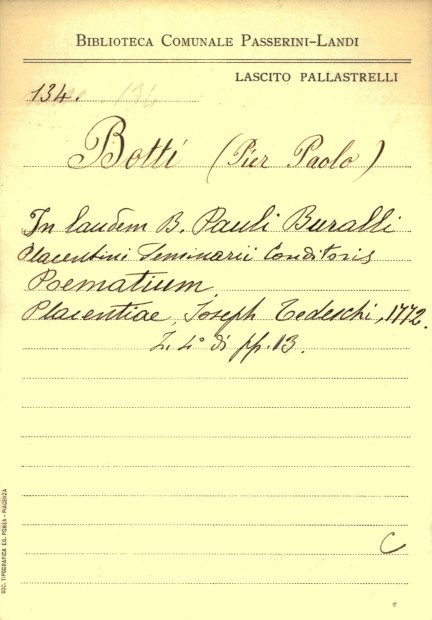 BIBLIOTECA COMUNALE PASSERINI-LANDI
LASCITO PALLASTRELLI
134.
Botti (Pier Paolo)
In laudem B. Pauli Buralli
Placentini Seminarii Conditoris
Poematium
Placentiae, Joseph Tedeschi, 1772.
In 4° di pp. 13.
C
SOC. TIPOGRAFICA ED. PORTA - PIACENZA